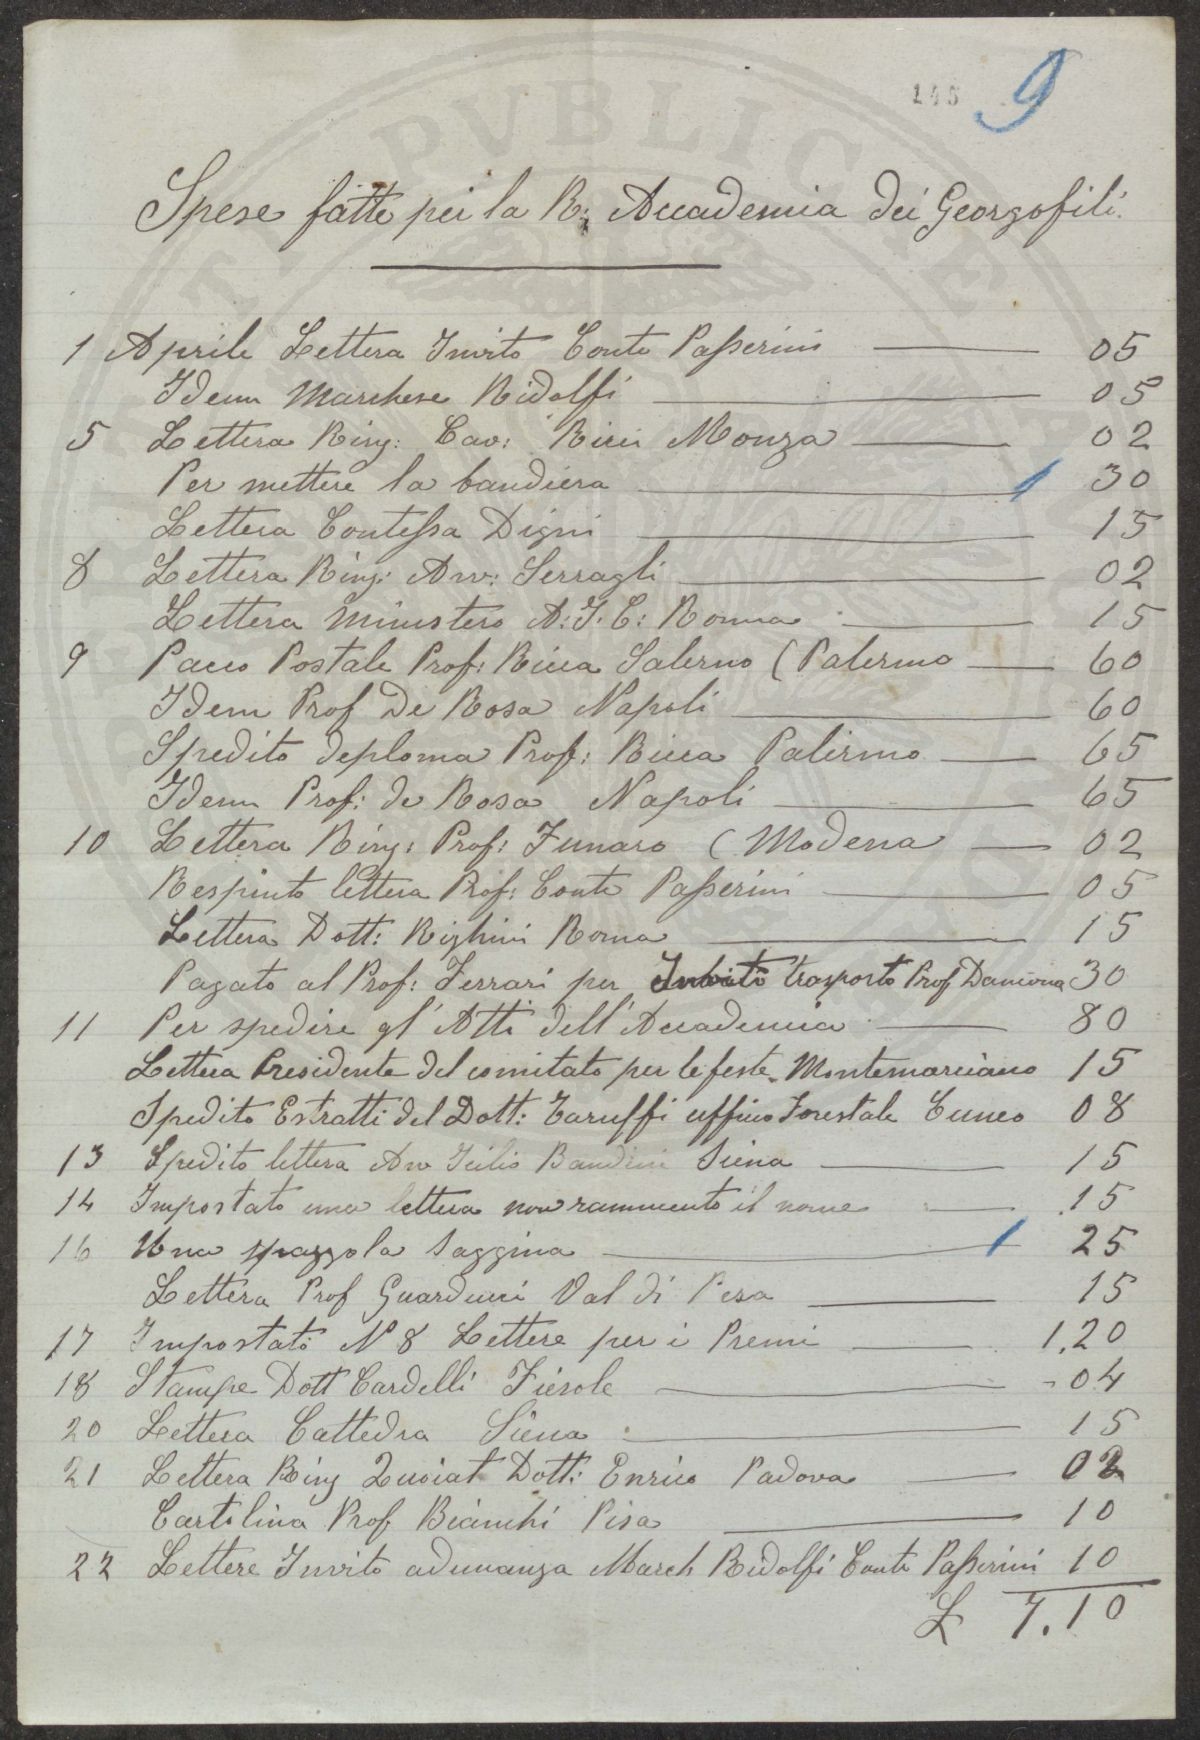 145 9
Spese fatte per la R. Accademia dei Georgofili.
1 Aprile Lettera Invito Conte Passerini 05
Idem Marchese Ridolfi 05
5 Lettera Ring: Cav: Ricci Monza 02
Per mettere la bandiera 1 30
Lettera Contessa Digni 15
8 Lettera Ring: Avv: Serragli 02
Lettera Ministero A: I. C: Roma 15
9 Pacco Postale Prof: Ricca Salerno (Palermo 60
Idem Prof De Rosa Napoli 60
Spedito deploma Prof: Ricca Palermo 65
Idem Prof: de Rosa Napoli 65
10 Lettera Ring: Prof: Funaro (Modena 02
Respinto lettera Prof: Conte Passerini 05
Lettera Dott: Righini Roma 15
Pagato al Prof: Ferrari per Inviti trasporto Prof Dancona 30
11 Per spedire gl'Atti dell'Accademia 80
Lettera Presidente del comitato per le feste Montemarciano 15
Spedito Estratti del Dott: Taruffi uffico Forestale Cuneo 08
13 Spedito lettera Avv Icilio Bandini Siena 15
14 Impostato una lettera non rammento il nome 15
16 Una spazzola Saggina 1 25
Lettera Prof Guarducci Val di Pesa 15
17 Impostato N 8 Lettere per i Premi 1,20
18 Stampe Dott Cardelli Fiesole 04
20 Lettera Cattedra Siena 15
21 Lettera Ring Dott: Enrico Padova 02
Cartolina Prof Bianchi Pisa 10
22 Lettere Invito adunanza March Ridolfi Conte Passerini 10
L 7.10